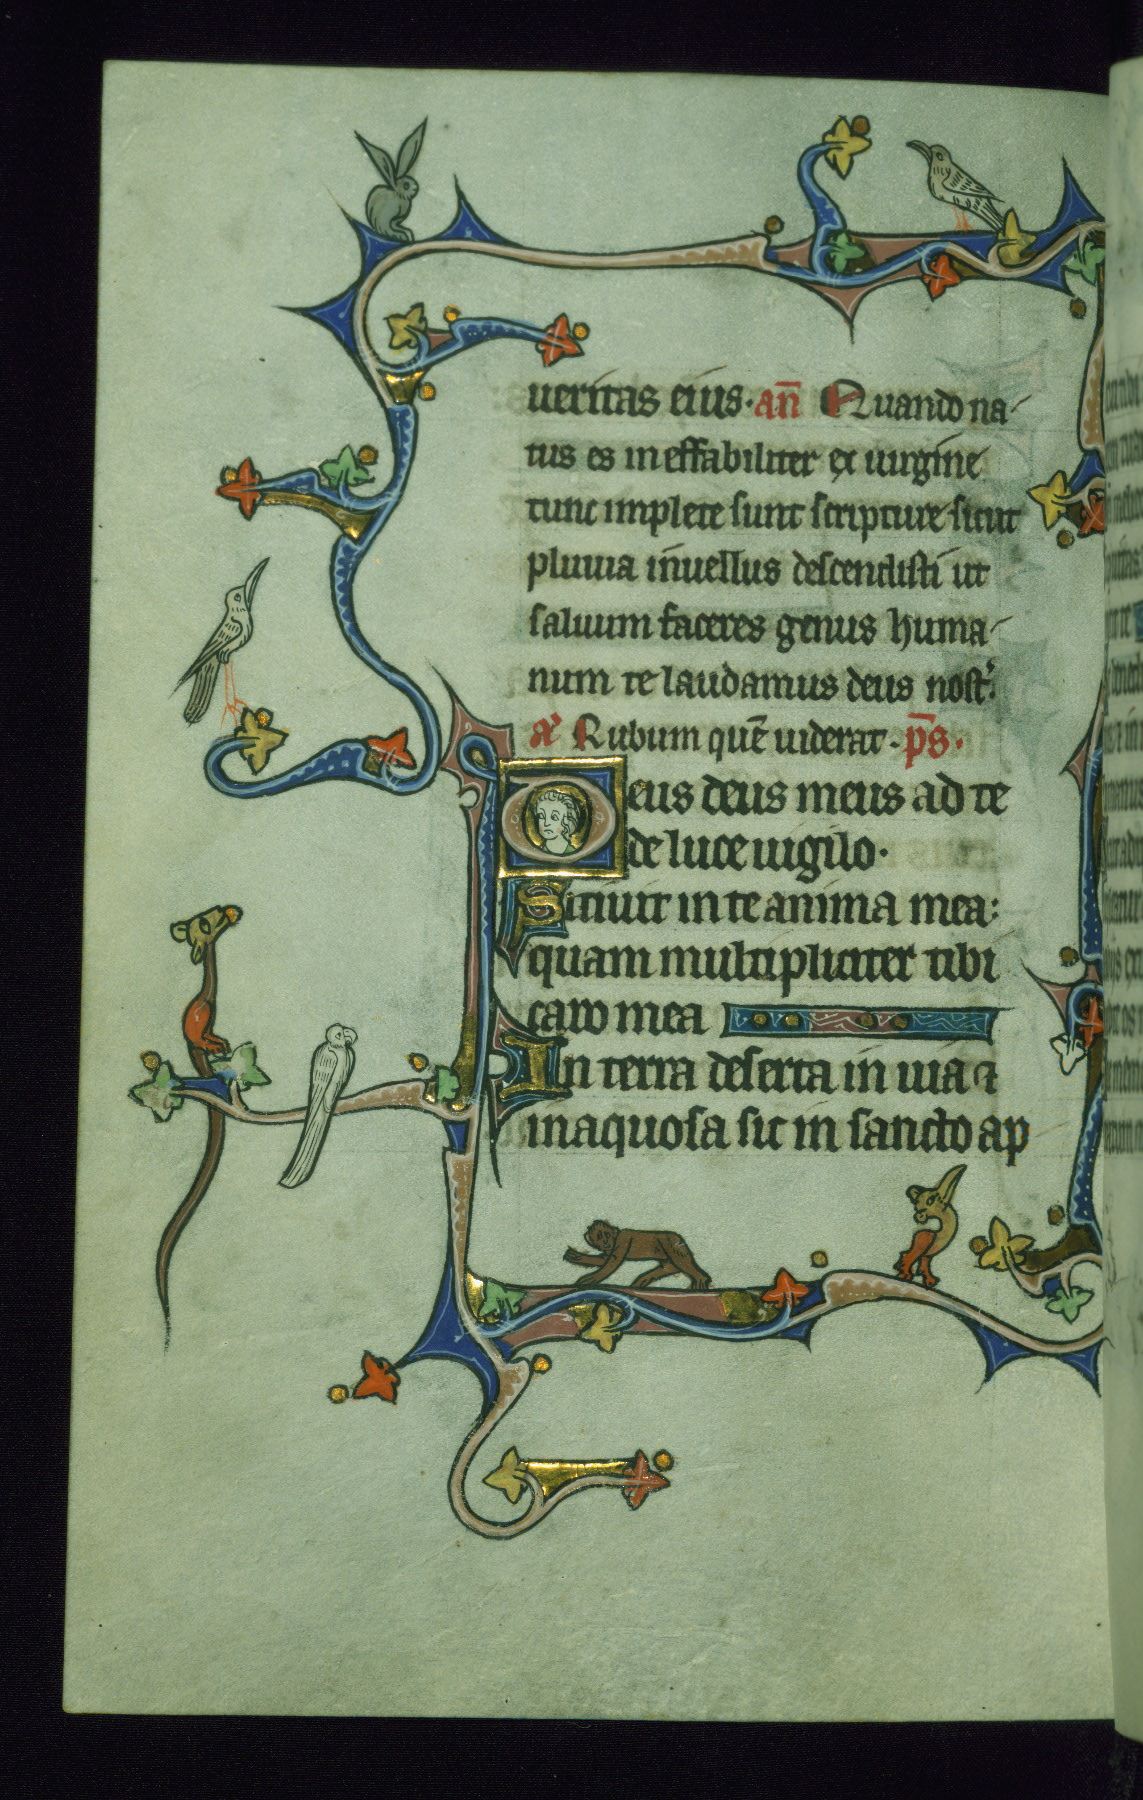 ueritas eius. an̄ Quando na-
tus es ineffabiliter ex uirgine
tunc implete sunt scripture sicut
pluuia in uellus descendisti ut
saluum faceres genus huma-
num te laudamus deus nost'.
a' Rubum quē uiderat. p̄s.
Deus deus meus ad te
de luce uigilo.
Sitiuit in te anima mea:
quam multipliciter tibi
caro mea
In terra deserta in uia ⁊
inaquosa sic in sancto ap